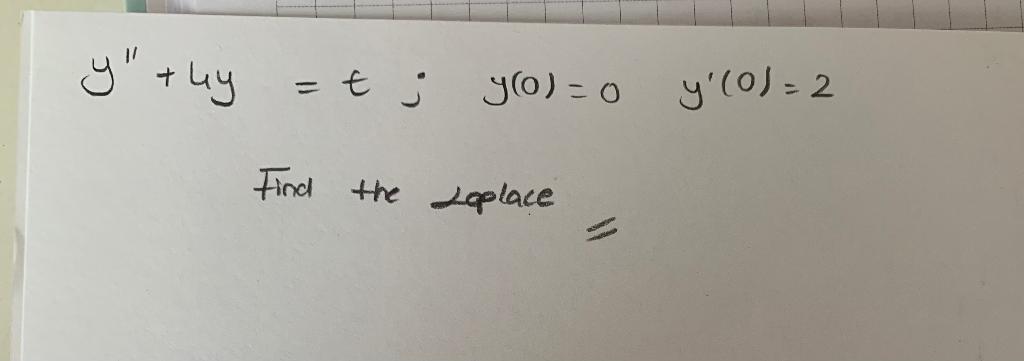 y'' + 4y = t ; y(0) = 0 y'(0) = 2
Find the Laplace